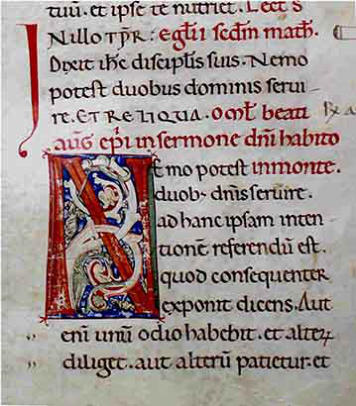 tuū. et ipse te nutriet. Lect S
N illo tp̄r: Eg̅lii sc̄dm math̄.
Dixit ih̅c discip̅lis suis. Nemo
potest duobus dominis serui-
re. ET RELIQUA. Om̅l beati
aug̅ ep̅i in sermone dn̅i habito
Nemo potest in monte.
duob; dn̅is seruire.
ad hanc ipsam inten
tionē referendū est.
quod consequenter
exponit dicens. Aut
enī unū odio habebit. et alterꝝ
diliget. aut alterū patietur. et